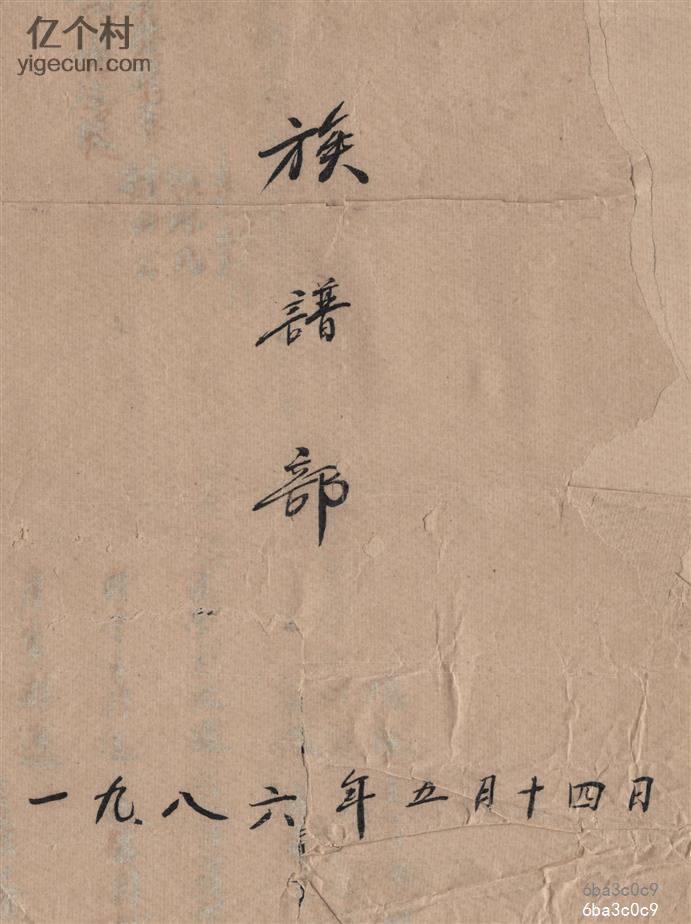 亿个村
yigecun.com
族
譜
部
一九八六年五月十四日
6ba3c0c9
6ba3c0c9